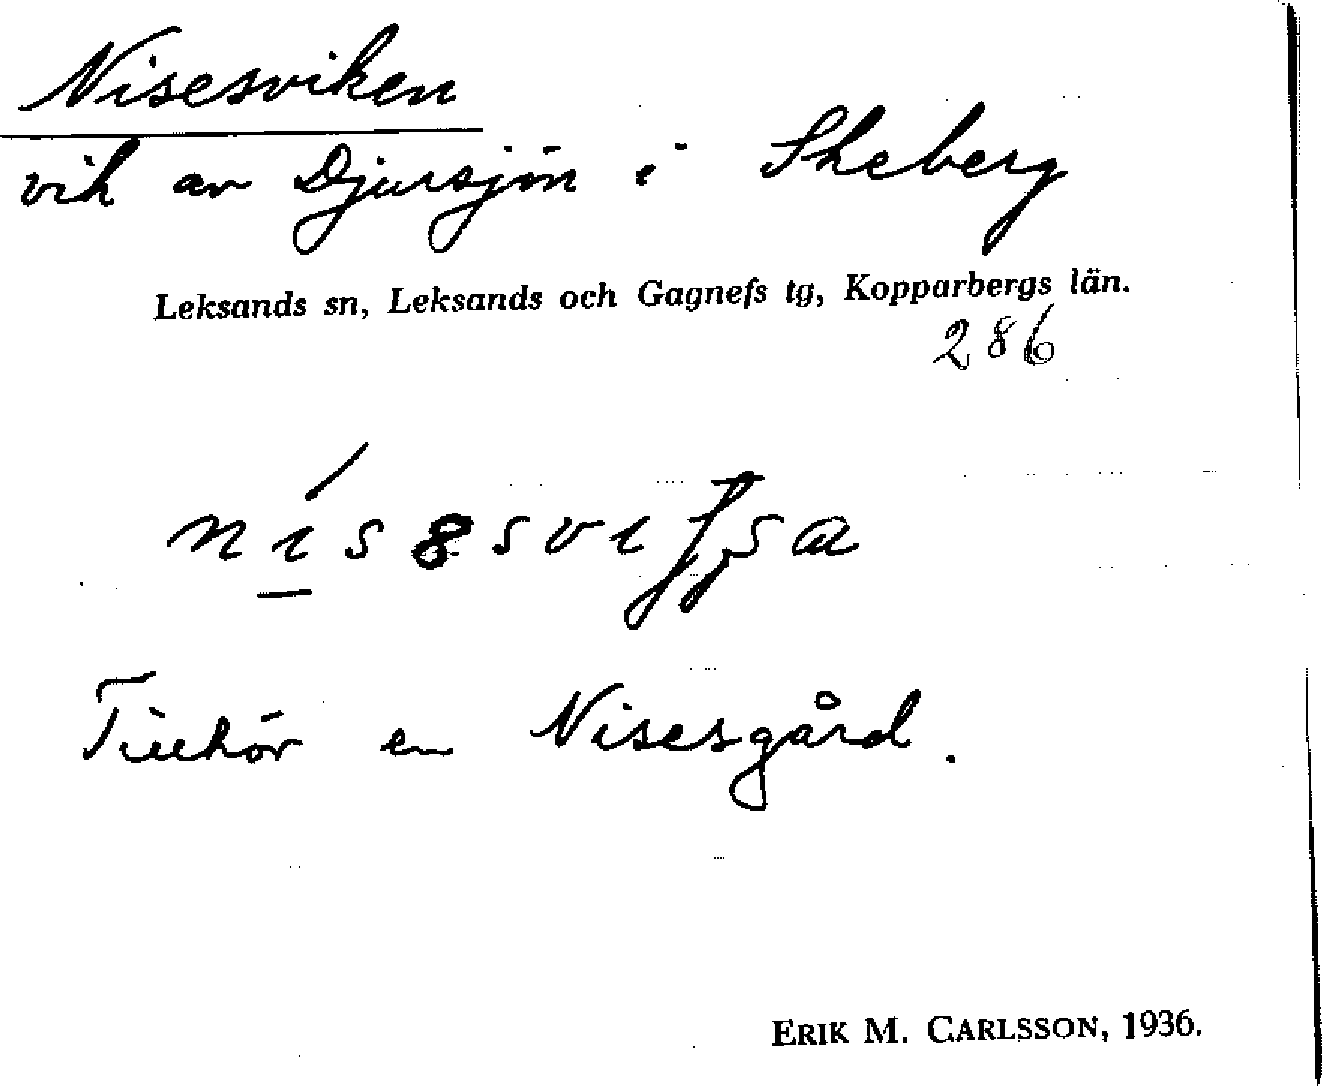 Nisesviken
vik av Djursjön i Skeberg
Leksands sn, Leksands och Gagnefs tg, Kopparbergs län.
286
Tillhör en Nisesgård.
ERIK M. CARLSSON, 1936.